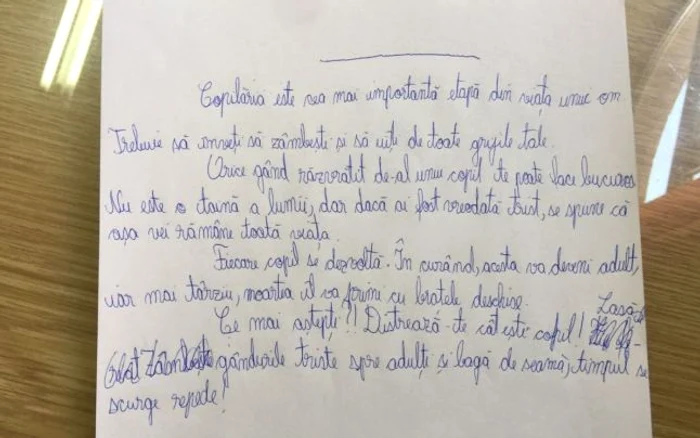 Copilăria este cea mai importantă etapă din viața unui om
Trebuie să înveți să zâmbește și să uiți de toate grijile tale.
Orice gând răzvrătit de-al unui copil te poate face bucuros
Nu este o taină a lumii, dar dacă ai fost vreodată trist, se spune că
așa vei rămâne toată viața.
Fiecare copil se dezvoltă. În curând, acesta va deveni adult,
iar mai târziu, moartea îl va primi cu brațele deschise.
Ce mai aștepți?! Distrează-te cât ești copil! Lasă
gândurile triste spre adulți și bagă de seamă, timpul se
scurge repede!